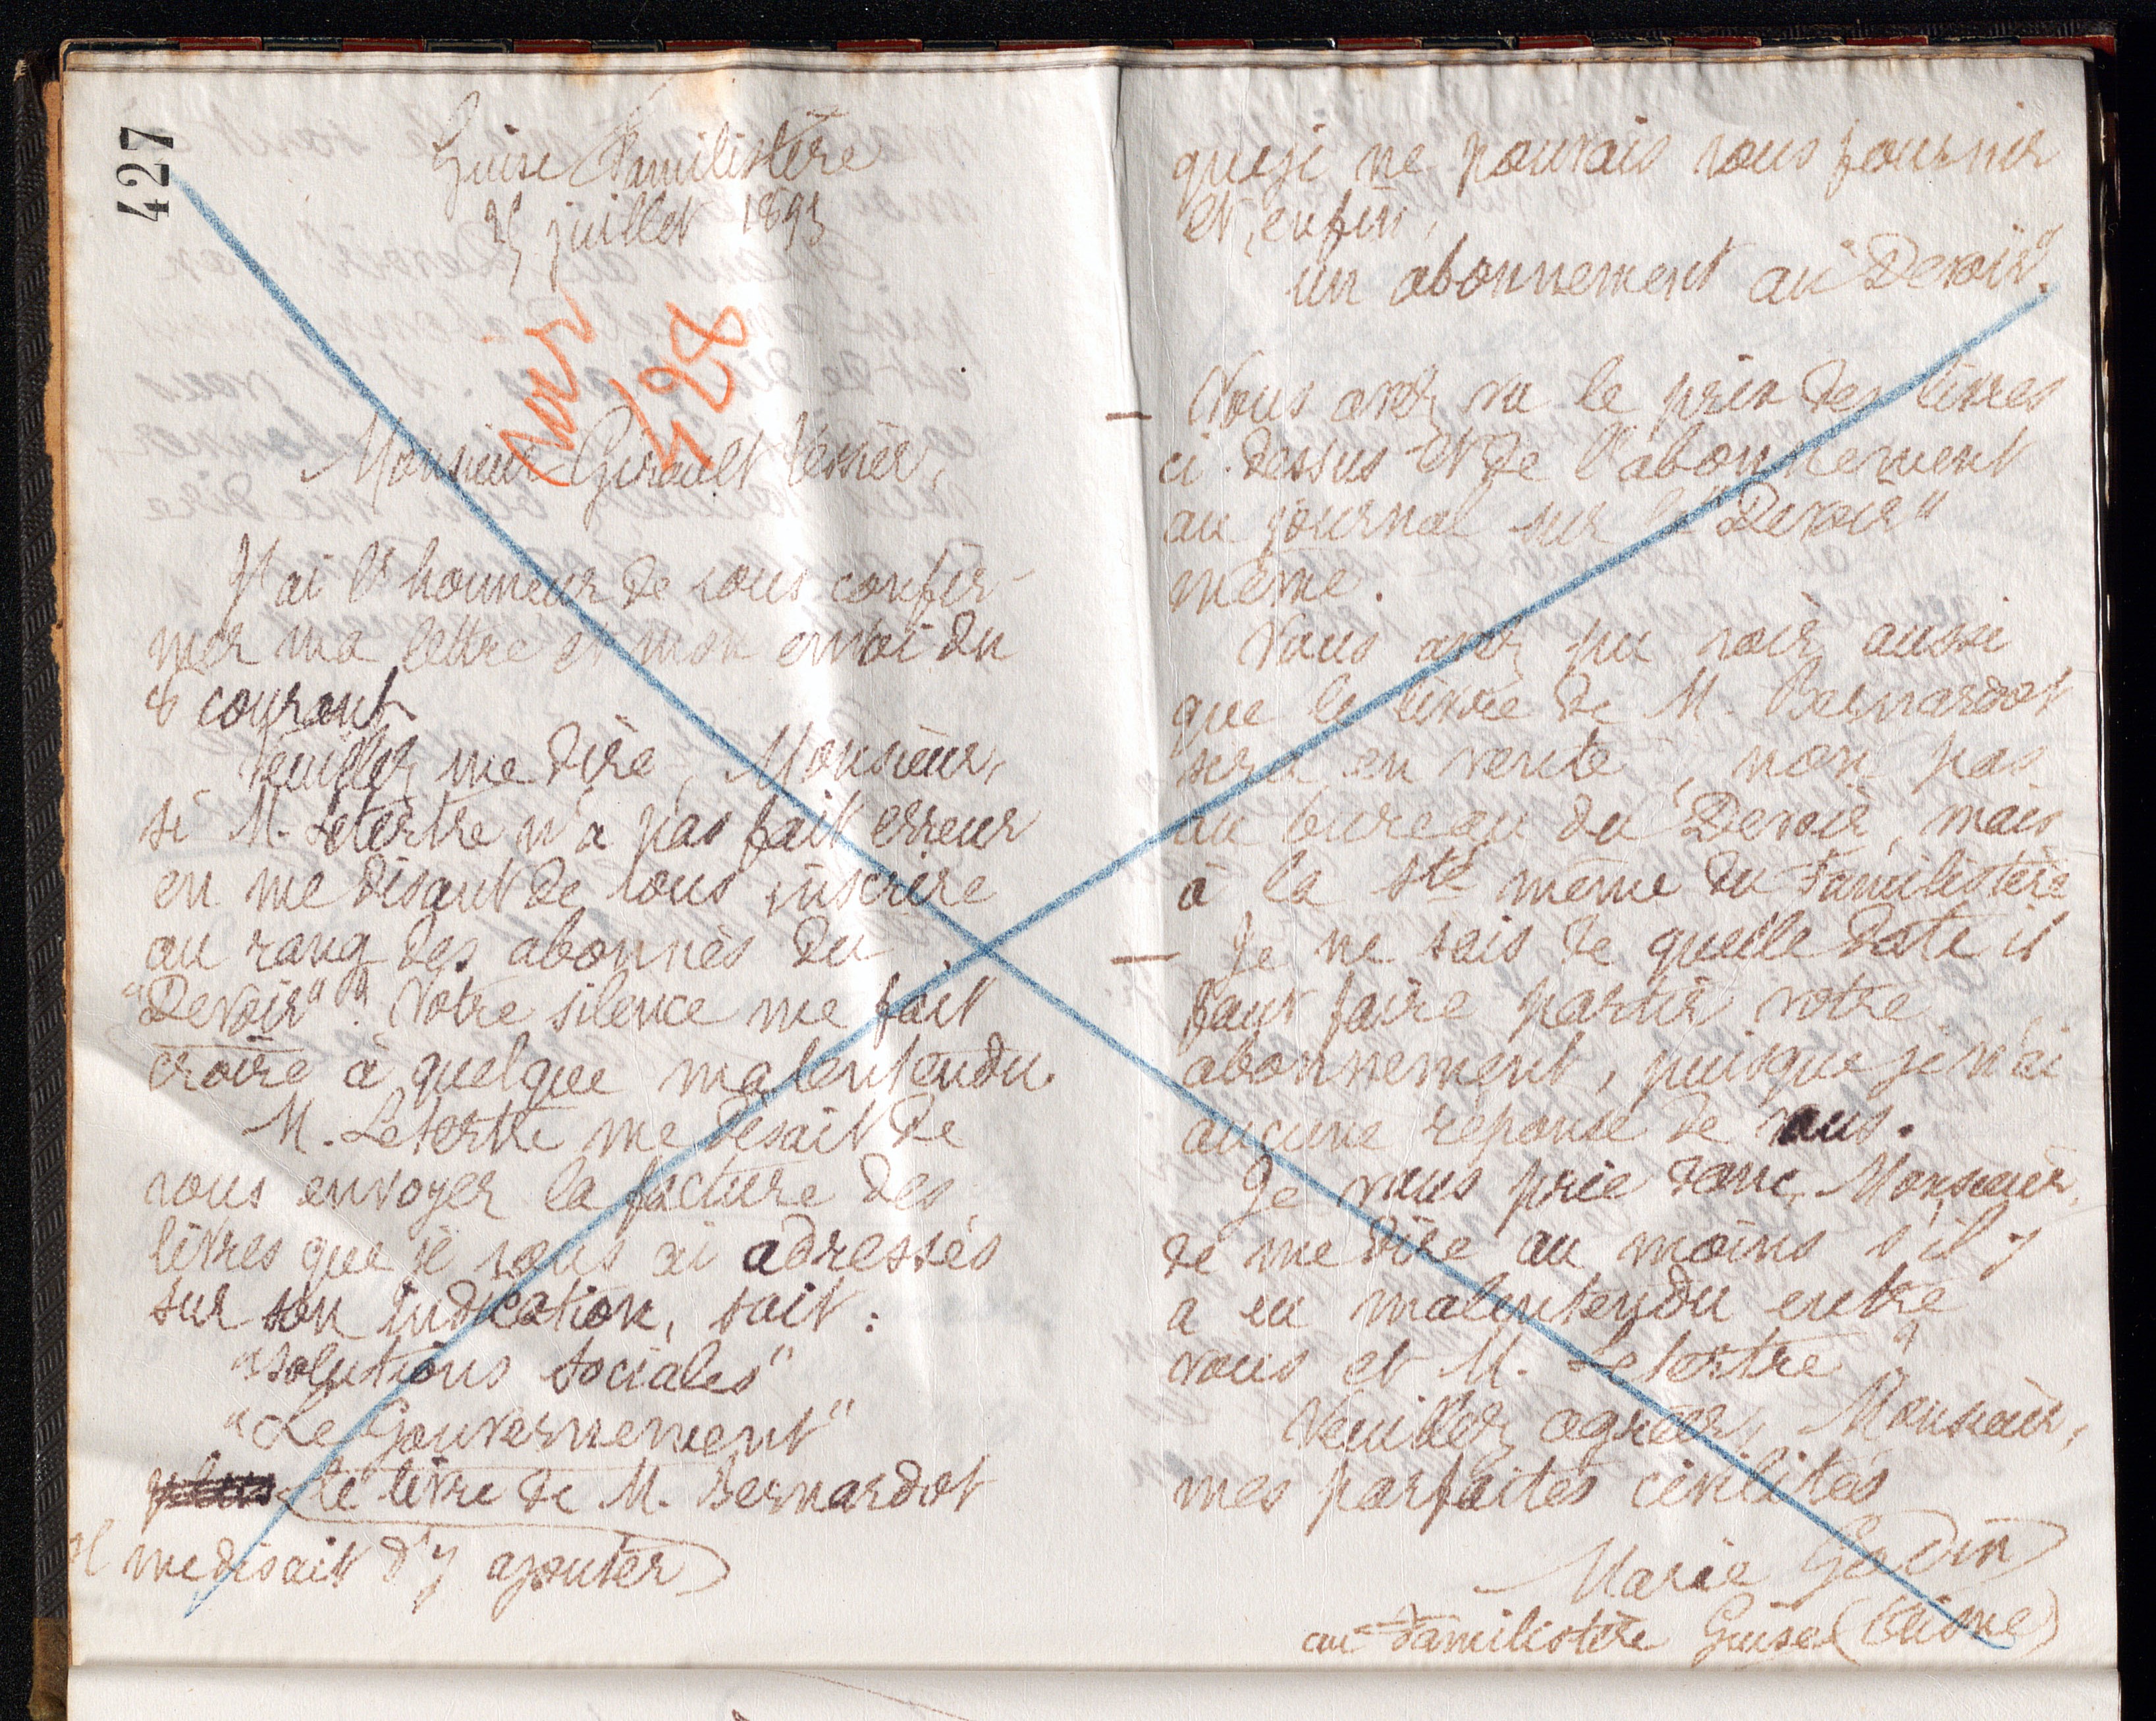 427
Guise Familistère
25 juillet 1893
voir
428
Monsieur Girault Tessier,
J'ai l'honneur de vous confir-
mer ma lettre et mon envoi du
8 courant
Veuillez me dire, Monsieur,
si M. Letertre n'a pas fait erreur
en me disant de vous inscrire
au rang des abonnés du
"Devoir"? Votre silence me fait
croire à quelque malentendu.
M. Letertre me disait de
vous envoyer la facture des
livres que je vous ai adressés
sur son indication, soit :
"Solutions sociales"
"Le Gouvernement"
plus le livre de M. Bernardot
Il me disait d'y ajouter
que je ne pouvais vous fournir
et, enfin,
un abonnement au "Devoir".
Vous avez vu le prix des livres
ci-dessus et de l'abonnement
au journal sur le "Devoir"
même.
Vous avez pu voir aussi
que le livre de M. Bernardot
sera en vente, non pas
au bureau du Devoir, mais
à la Sté même du Familistère
Je ne sais de quelle date il
faut faire partir votre
abonnement, puisque je n'ai
aucune réponse de vous.
Je vous prie donc, Monsieur,
de me dire au moins s'il y
a eu malentendu entre
vous et M. Letertre ?
Veuillez agréer, Monsieur,
mes parfaites civilités
Marie Godin
au Familistère Guise (Aisne)